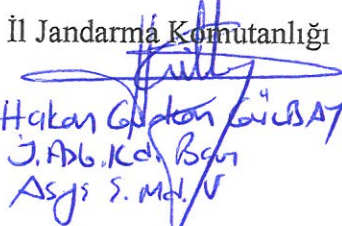 İl Jandarma Komutanlığı
Hakan GÜLBAY
J.Asb.Kd.Bçvş
Asyş Ş. Md. V